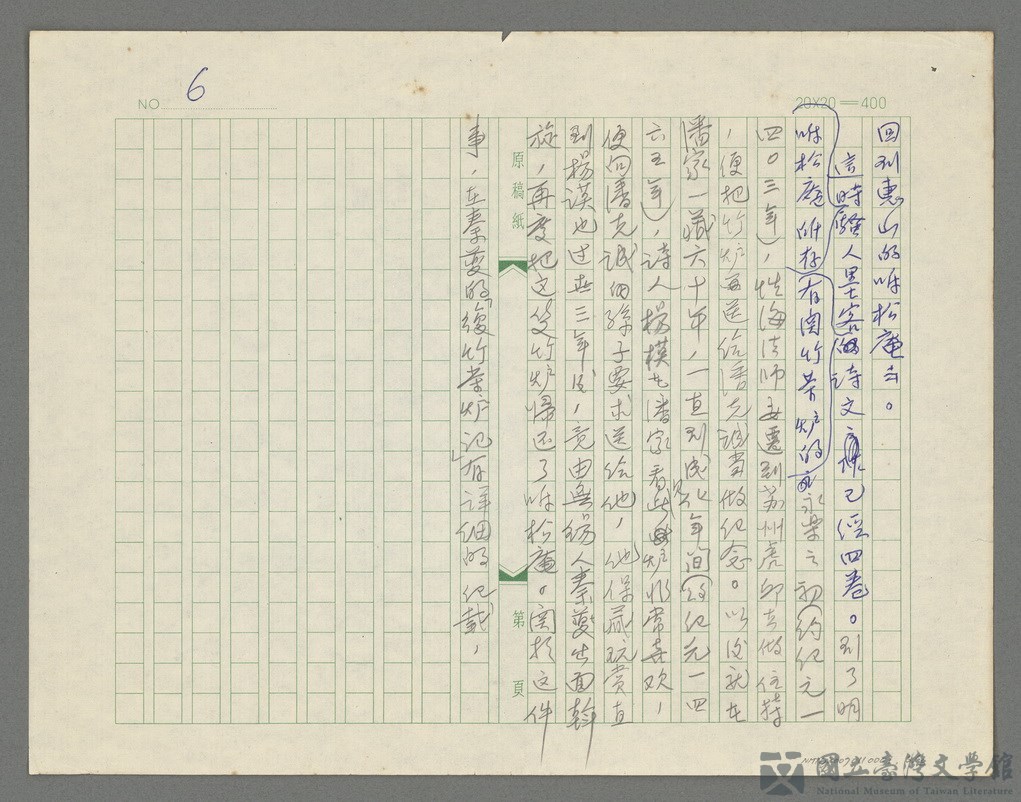 NO 6
20X20＝400
回到惠山的听松庵去。
這時騷人墨客的诗文 已经四卷。到了明
听松庵附存有関竹茶炉的 永樂之初（约纪元一
四〇三年），性海法师要遷到苏州虎邱去做住持
，便把竹炉再送给潘克誠当做纪念。以后就在
潘家一藏六十年，一直到成化年间（约纪元一四
六五年），诗人楊模在潘家看此炉非常喜欢，
便向潘克誠的孫子要求送给他，他保藏玩赏直
到楊謨也过去三年后，竟由無锡人秦夔出面斡
旋，再度把这笅竹炉归还了听松庵。関於这件
事，在秦夔的「復竹茶炉记」有详细的纪载，
原稿紙
第 頁
國立臺灣文學館
National Museum of Taiwan Literature